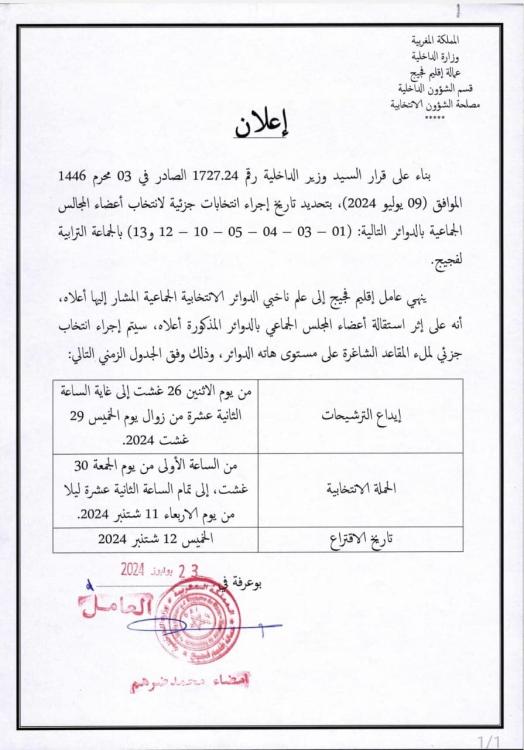 المملكة المغربية
وزارة الداخلية
عمالة إقليم فجيج
قسم الشؤون الداخلية
مصلحة الشؤون الانتخابية
*****
إعلان
بناء على قرار السيد وزير الداخلية رقم 1727.24 الصادر في 03 محرم 1446
الموافق (09 يوليو 2024)، بتحديد تاريخ إجراء انتخابات جزئية لانتخاب أعضاء المجالس
الجماعية بالدوائر التالية: (01 – 03 – 04 – 05 – 10 – 12 و13) بالجماعة الترابية
لفجيج.
ينهي عامل إقليم فجيج إلى علم ناخبي الدوائر الانتخابية الجماعية المشار إليها أعلاه،
أنه على إثر استقالة أعضاء المجلس الجماعي بالدوائر المذكورة أعلاه، سيتم إجراء انتخاب
جزئي لملء المقاعد الشاغرة على مستوى هاته الدوائر، وذلك وفق الجدول الزمني التالي:
إيداع الترشيحات
من يوم الاثنين 26 غشت إلى غاية الساعة
الثانية عشرة من زوال يوم الخميس 29
غشت 2024.
الحملة الانتخابية
من الساعة الأولى من يوم الجمعة 30
غشت، إلى تمام الساعة الثانية عشرة ليلا
من يوم الاربعاء 11 شتنبر 2024.
تاريخ الاقتراع
الخميس 12 شتنبر 2024
بوعرفة في 23 يوليوز 2024
العامل
امضاء محمد ضرهم
1/1